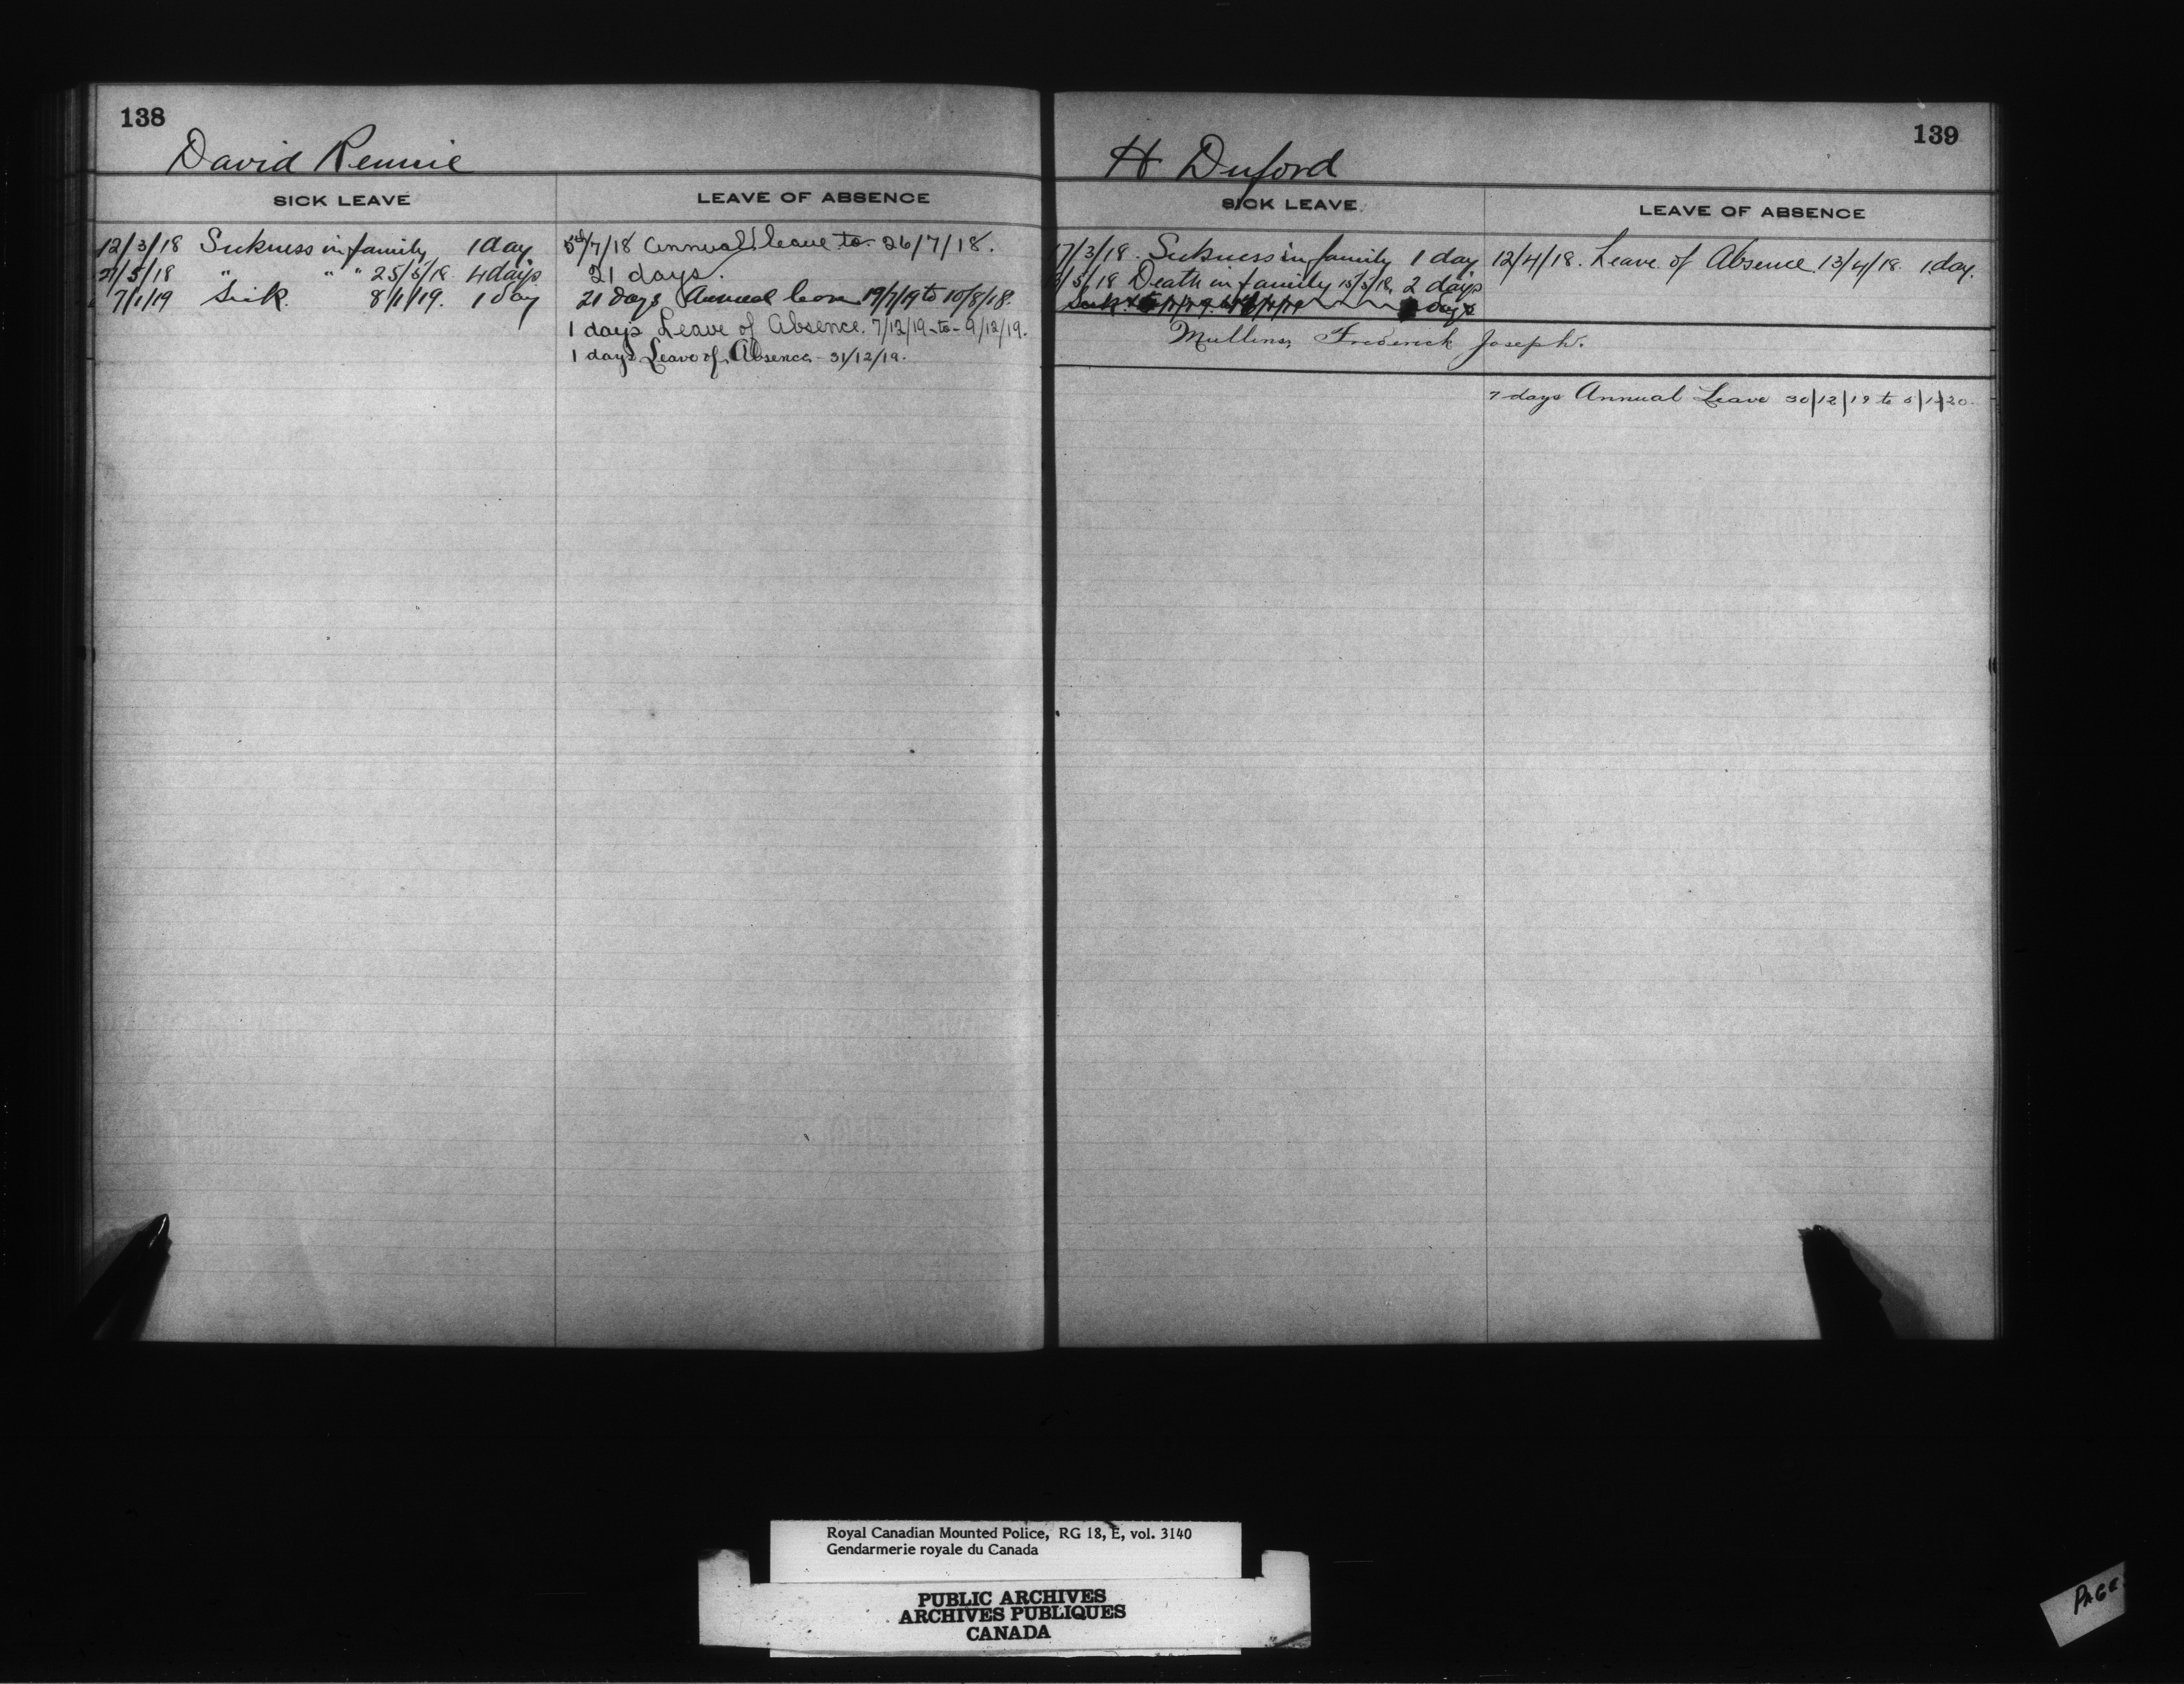 138
David Rennie
SICK LEAVE
LEAVE OF ABSENCE
12/3/18 Sickness in family 1 day
21/5/18 " " " 25/5/18 4 days
7/1/19 Sick. 8/1/19. 1 day
5th/7/18 Annual leave to 26/7/18.
21 days.
21 days Annual leave 19/7/19 to 10/8/18.
1 days Leave of Absence. 7/12/19 - to - 9/12/19.
1 days Leave of Absence - 31/12/19.
139
H Duford
SICK LEAVE
LEAVE OF ABSENCE
17/3/18. Sickness in family 1 day
/5/18 Death in family 15/5/18, 2 days
Sick days
12/4/18. Leave of Absence 13/4/18. 1 day.
Mullins, Frederick Joseph.
7 days Annual Leave 30/12/19 to 5/1/20.
Royal Canadian Mounted Police, RG 18, E, vol. 3140
Gendarmerie royale du Canada
PUBLIC ARCHIVES
ARCHIVES PUBLIQUES
CANADA
PAGE